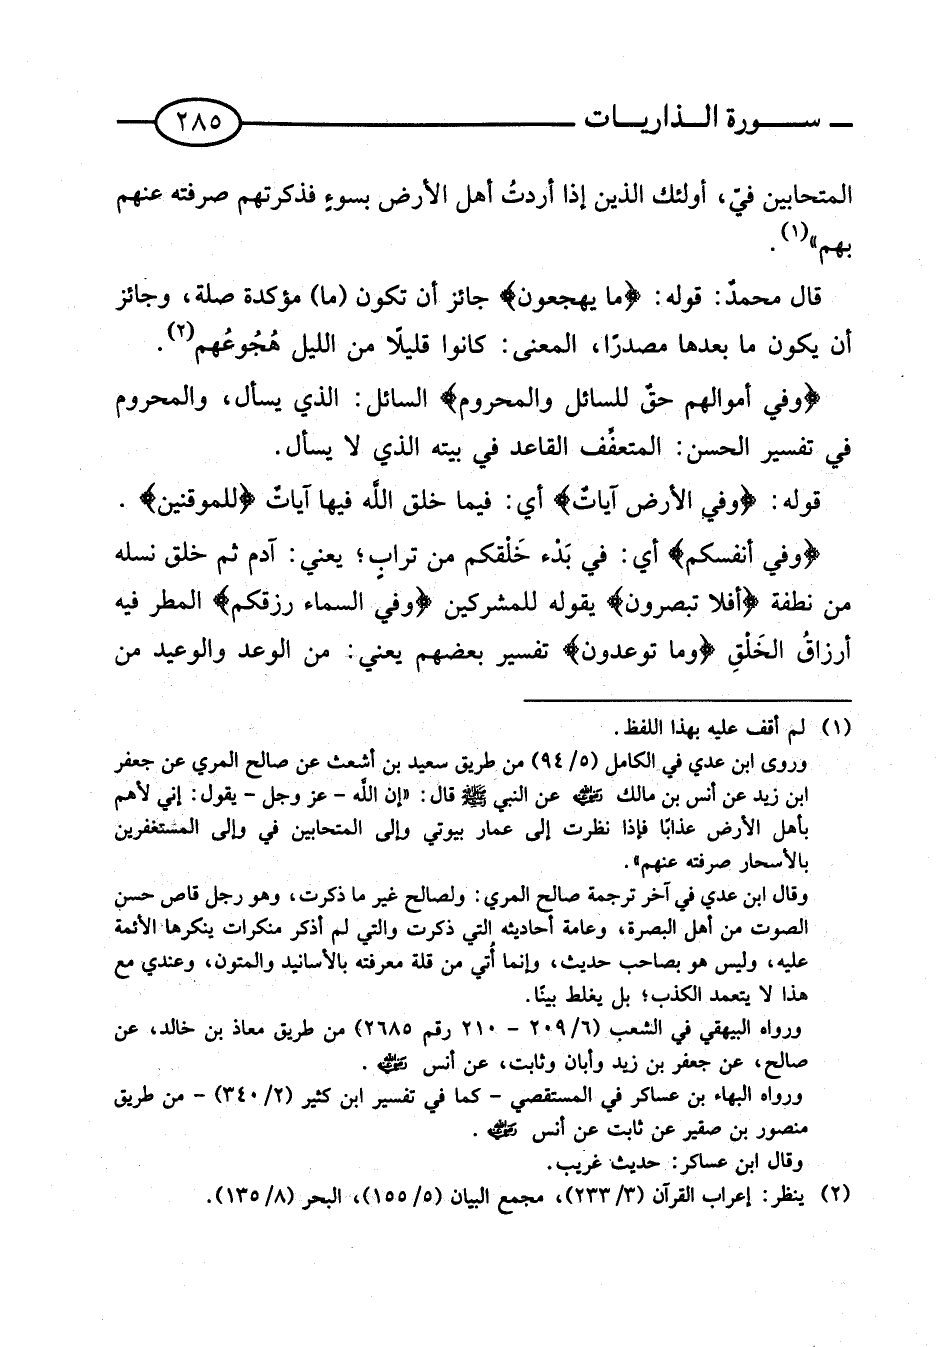 سورة الذاريات ٢٨٥
المتحابين فيّ، أولئك الذين إذا أردتُ أهل الأرض بسوءٍ فذكرتهم صرفته عنهم
بهم»(١).
قال محمدٌ: قوله: ﴿ما يهجعون﴾ جائز أن تكون (ما) مؤكدة صلة، وجائز
أن يكون ما بعدها مصدرًا، المعنى: كانوا قليلًا من الليل هُجُوعُهم(٢).
﴿وفي أموالهم حقٌ للسائل والمحروم﴾ السائل: الذي يسأل، والمحروم
في تفسير الحسن: المتعفِّف القاعد في بيته الذي لا يسأل.
قوله: ﴿وفي الأرض آياتٌ﴾ أي: فيما خلق اللَّه فيها آياتٌ ﴿للموقنين﴾ .
﴿وفي أنفسكم﴾ أي: في بَدْء خَلْقكم من ترابٍ؛ يعني: آدم ثم خلق نسله
من نطفة ﴿أفلا تبصرون﴾ يقوله للمشركين ﴿وفي السماء رزقكم﴾ المطر فيه
أرزاقُ الخَلْقِ ﴿وما توعدون﴾ تفسير بعضهم يعني: من الوعد والوعيد من
(١) لم أقف عليه بهذا اللفظ.
وروى ابن عدي في الكامل (٥/ ٩٤) من طريق سعيد بن أشعث عن صالح المري عن جعفر
ابن زيد عن أنس بن مالك رضي الله عنه عن النبي ﷺ قال: «إن اللَّه - عز وجل - يقول: إني لأهم
بأهل الأرض عذابًا فإذا نظرت إلى عمار بيوتي وإلى المتحابين في وإلى المستغفرين
بالأسحار صرفته عنهم».
وقال ابن عدي في آخر ترجمة صالح المري: ولصالح غير ما ذكرت، وهو رجل قاص حسن
الصوت من أهل البصرة، وعامة أحاديثه التي ذكرت والتي لم أذكر منكرات ينكرها الأئمة
عليه، وليس هو بصاحب حديث، وإنما أُتي من قلة معرفته بالأسانيد والمتون، وعندي مع
هذا لا يتعمد الكذب؛ بل يغلط بينًا.
ورواه البيهقي في الشعب (٦/ ٢٠٩ - ٢١٠ رقم ٢٦٨٥) من طريق معاذ بن خالد، عن
صالح، عن جعفر بن زيد وأبان وثابت، عن أنس رضي الله عنه .
ورواه البهاء بن عساكر في المستقصي - كما في تفسير ابن كثير (٢/ ٣٤٠) - من طريق
منصور بن صقير عن ثابت عن أنس رضي الله عنه .
وقال ابن عساكر: حديث غريب.
(٢) ينظر: إعراب القرآن (٣/ ٢٣٣)، مجمع البيان (٥/ ١٥٥)، البحر (٨/ ١٣٥).